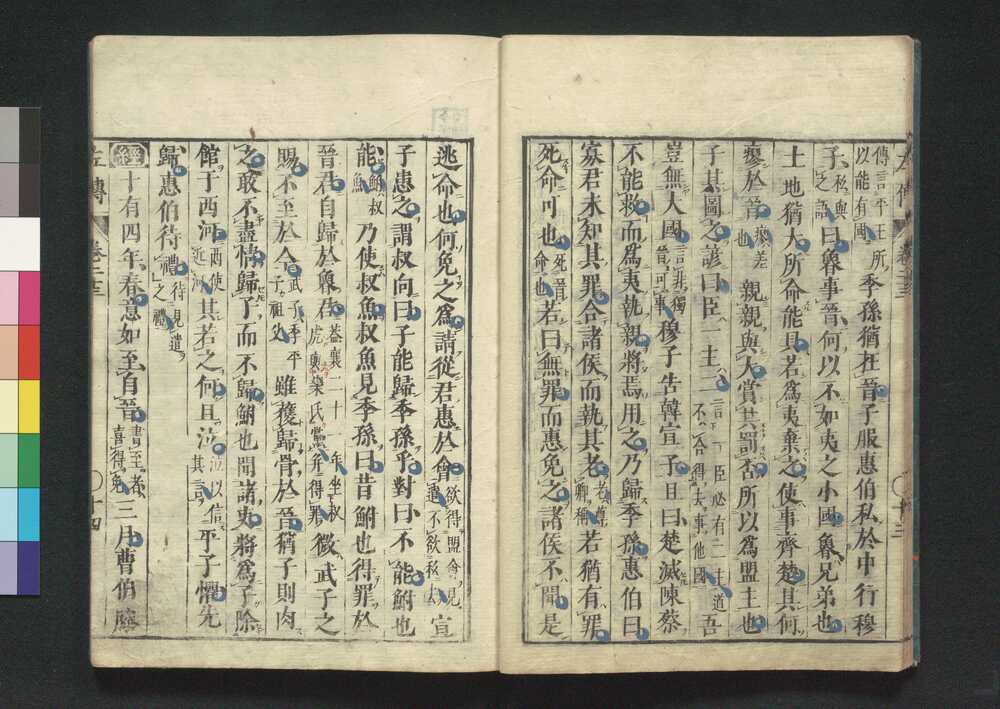 傳言平王所以能有國季孫猶在晉子服惠伯私於中行穆
子私與之語曰魯事晉何以不如夷之小國魯兄弟也
土地猶大所命能具若爲夷棄之使事齊楚其何
瘳於晉瘳差也親親與大賞共罰否所以爲盟主也
子其圖之諺曰臣一主二言一臣必有二主道不合得去事他國吾
豈無大國言非獨晉可事穆子告韓宣子且曰楚滅陳蔡
不能救而爲夷執親將焉用之乃歸季孫惠伯曰
寡君未知其罪合諸侯而執其老老尊卿稱若猶有罪
死命可也死晉命也若曰無罪而惠免之諸侯不聞是
逃命也何免之爲請從君惠於會欲得盟會見遣不欲私去宣
子患之謂叔向曰子能歸季孫乎對曰不能鮒也
能鮒叔魚乃使叔魚叔魚見季孫曰昔鮒也得罪於
晉君自歸於魯君蓋襄二十一年坐叔虎與欒氏黨并得罪微武子之
賜不至於今武子季平子祖父雖獲歸骨於晉猶子則肉
之敢不盡情歸子而不歸鮒也聞諸吏將爲子除
館于西河西使近河其若之何且泣泣以信其言平子懼先
歸惠伯待禮待見遣之禮
經十有四年春意如至自晉書至者喜得免三月曹伯滕
左傳 十四